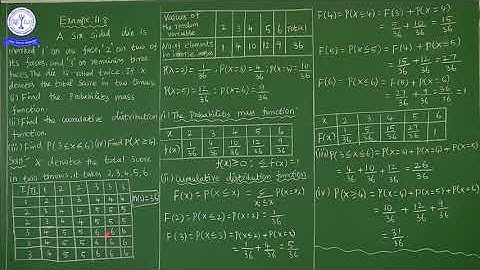 Example 11.8
A six sided die is
marked '1' on one face, '2' on two of
its faces, and '3' on remaining three
faces. The die is rolled twice. If X
denotes the total score in two throws.
(i) Find the Probability mass
function.
(ii) Find the cumulative distribution
function.
(iii) Find P(3≤X<6) (iv) Find P(X≥4).
Soln: X denotes the total score
in two throws, it takes 2,3,4,5,6.
I\II 1 2 2 3 3 3
1 2 3 3 4 4 4
2 3 4 4 5 5 5
2 3 4 4 5 5 5
3 4 5 5 6 6 6
3 4 5 5 6 6 6
3 4 5 5 6 6 6
n(s)=36
Values of the random variable 2 3 4 5 6 Total
No. of elements in inverse images 1 4 10 12 9 36
P(X=2)=1/36, P(X=3)=4/36, P(X=4)=10/36
P(X=5)=12/36, P(X=6)=9/36
(i) The Probability mass function
x 2 3 4 5 6
f(x) 1/36 4/36 10/36 12/36 9/36
f(x)≥0; Σf(x)=1
(ii) cumulative distribution function
F(x)=P(X≤x)=Σ P(X=xi)
F(2)=P(X≤2)=P(X=2)=1/36
F(3)=P(X≤3)=P(X=2)+P(X=3)
=1/36+4/36=5/36
F(4)=P(X≤4)=F(3)+P(X=4)
=5/36+10/36=15/36
F(5)=P(X≤5)=F(4)+P(X=5)
=15/36+12/36=27/36
F(6)=P(X≤6)=F(5)+P(X=6)
=27/36+9/36=36/36=1
x 2 3 4 5 6
F(x) 1/36 5/36 15/36 27/36 1
=4/36+10/36+12/36=26/36
(iv) P(X≥4)=P(X=4)+P(X=5)+P(X=6)
=10/36+12/36+9/36
=31/36